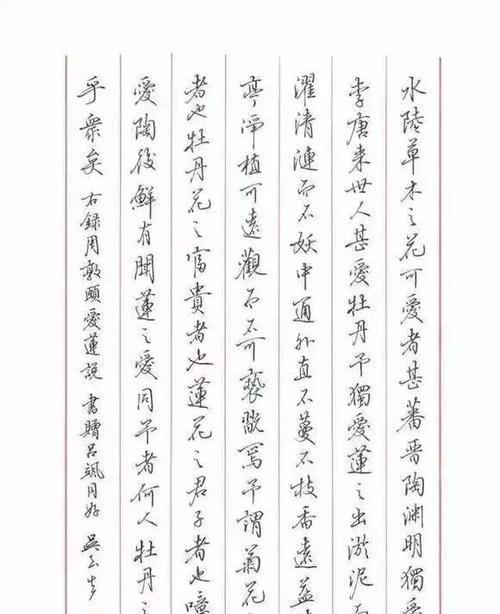 水陸草木之花可愛者甚蕃晉陶淵明獨愛
李唐来世人甚愛牡丹予獨愛蓮之出淤泥而
濯清漣而不妖中通外直不蔓不枝香遠益清
亭淨植可遠觀而不可褻翫焉予謂菊花
者也牡丹花之富貴者也蓮花之君子者也噫
愛陶後鮮有聞蓮之愛同予者何人牡丹之
乎衆矣 右録周敦頤愛蓮說 書贈吕颯同好 吴玉生